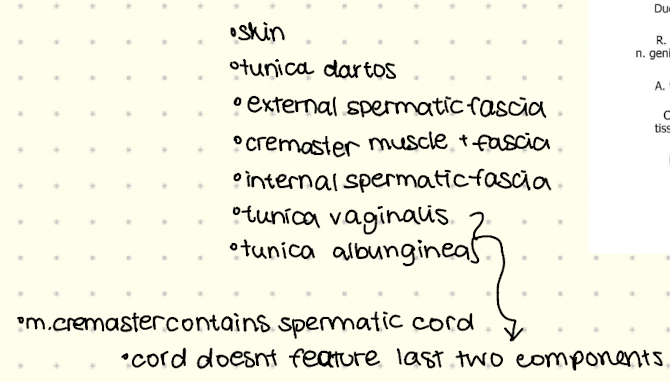 Du
•skin
R.
n. geni
•tunica dartos
A.
•external spermatic fascia
•cremaster muscle + fascia
tiss
•internal spermatic fascia
•tunica vaginalis
•tunica albunginea
•m.cremaster contains spermatic cord
•cord doesnt feature last two components